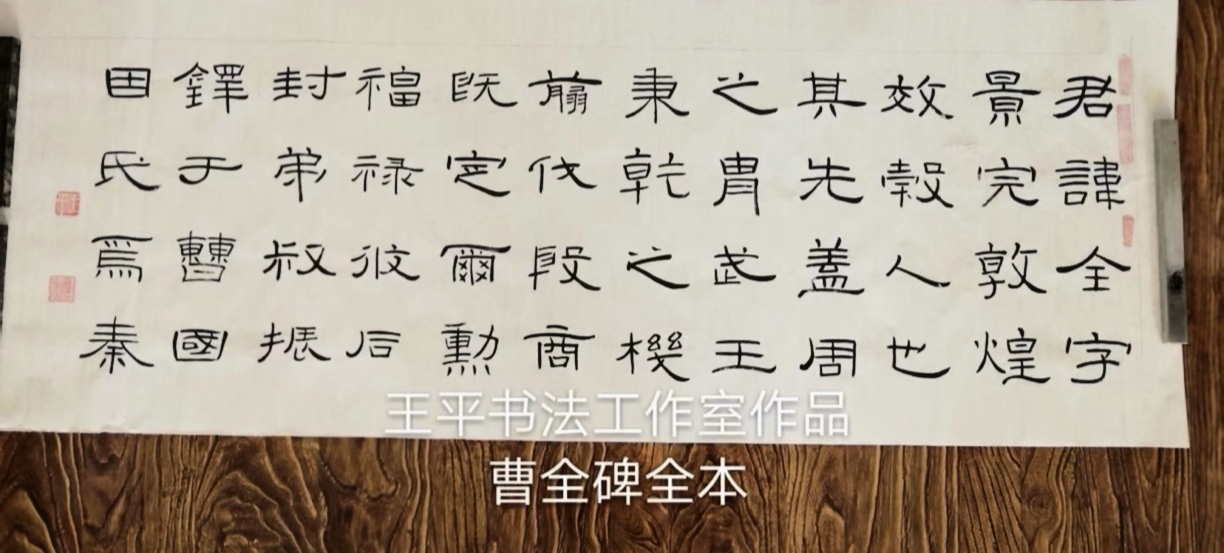 君諱全字
景完敦煌
效穀人也
其先蓋周
之胄武王
秉乾之機
翦伐殷商
既定爾勳
福禄攸后
封弟叔振
鐸于曹國
因氏焉秦
王平书法工作室作品
曹全碑全本